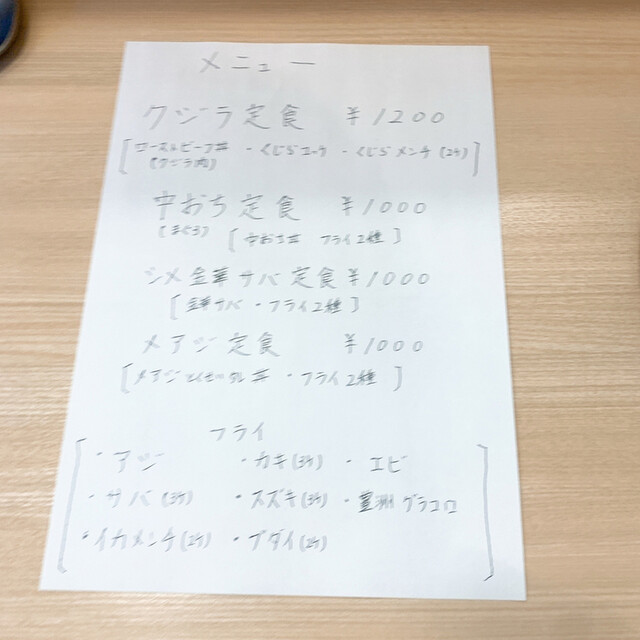 メニュー
クジラ定食 ¥1200
[ローストビーフ丼 ・くじらユッケ ・くじらメンチ(2ケ)]
(クジラ肉)
中おち定食 ¥1000
[まぐろ] [中おち丼 フライ2種]
シメ金華サバ定食 ¥1000
[金華サバ・フライ2種]
メアジ定食 ¥1000
[メアジ 丼 ・フライ2種]
フライ
・アジ ・カキ(3ケ) ・エビ
・サバ(3ケ) ・スズキ(3ケ) ・豊洲グラコロ
・イカメンチ(2ケ) ・ブダイ(2ケ)